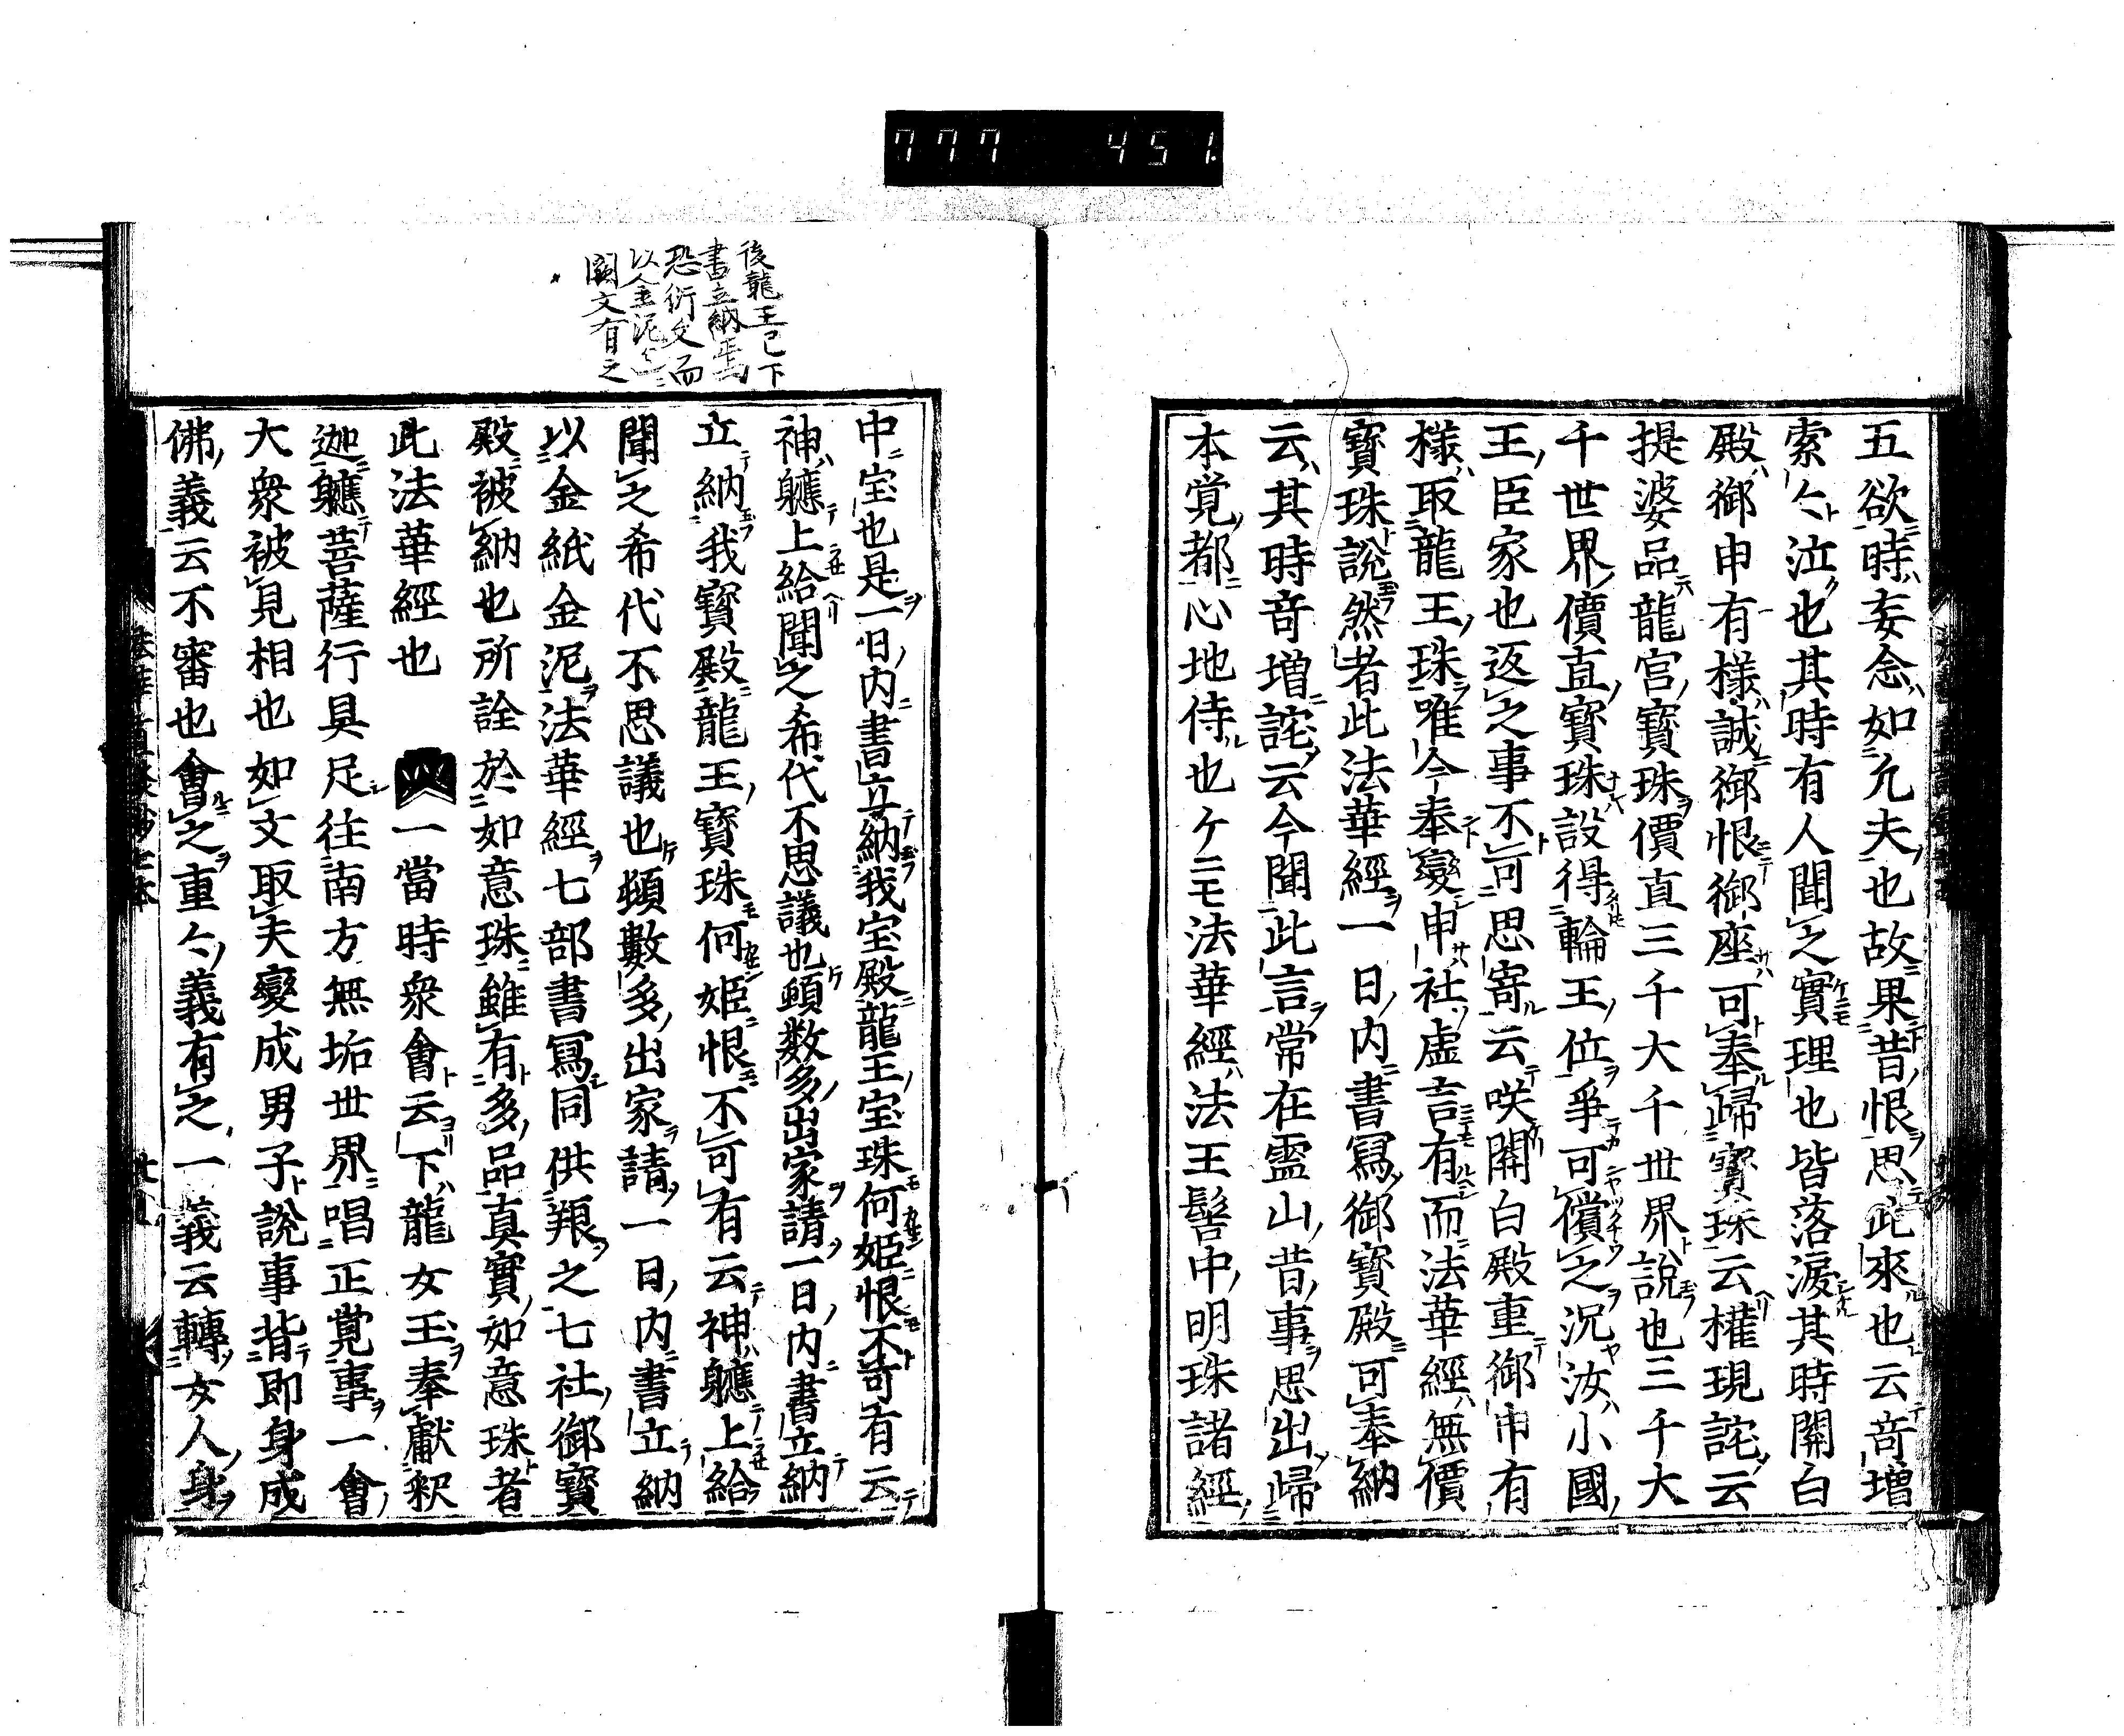 777 451
五欲時妄念如凡夫也故果昔恨思此來也云竒増
索々泣也其時有人聞之實理也皆落淚其時関白
殿御申有様誠御恨御座可奉歸寳珠云権現詫云
提婆品龍宮寳珠價直三千大千世界說也三千大
千世界價直寳珠設得輪王位爭可償之況汝小國
王臣家也返之事不可思寄云咲関白殿重御申有
様取龍王珠唯今奉變申社虛言有而法華經無價
寳珠說然者此法華經一日內書冩御寳殿可奉納
云其時竒増詫云今聞此言常在靈山昔事思出歸
本覚都心地侍也ケニモ法華經法王髻中明珠諸經
後龍王已下
書立納焉
恐衍文而
以金泥
闕文有之
中宝也是一日內書立納我宝殿龍王宝珠何姬恨不竒有云
神軈上給聞之希代不思議也頓数多出家請一日內書立納
立納我寳殿龍王寳珠何姬恨不可有云神軈上給
聞之希代不思議也頓數多出家請一日內書立納
以金紙金泥法華經七部書冩同供羪之七社御寳
殿被納也所詮於如意珠雖有多品真實如意珠者
此法華經也 一當時衆會云下龍女玉奉獻釈
迦軈菩薩行具足往南方無垢世界唱正覚事一會
大衆被見相也如文取夫變成男子說事皆即身成
佛義云不審也會之重々義有之一義云轉女人身